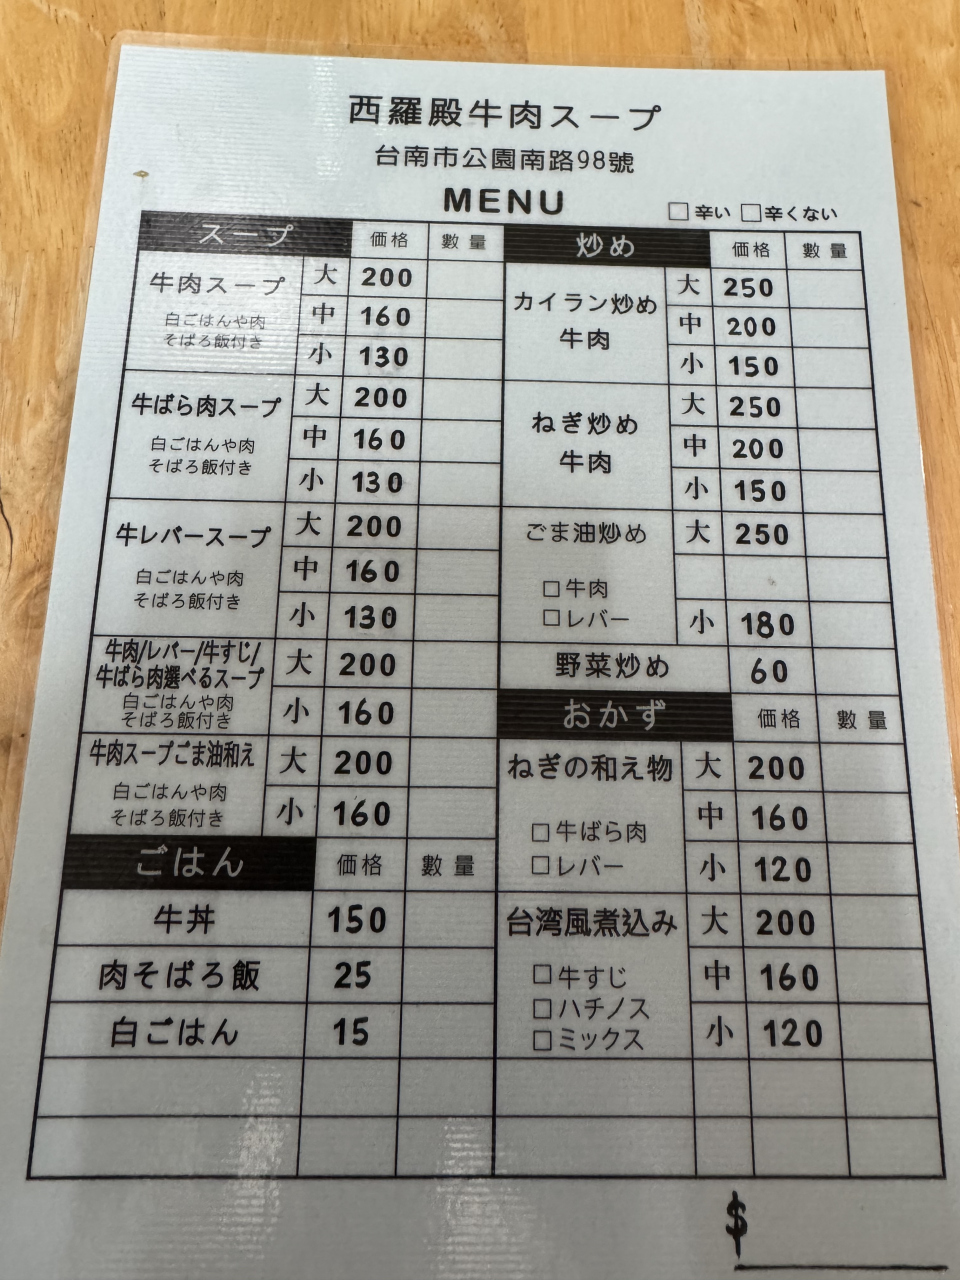 西羅殿牛肉スープ
台南市公園南路98號
MENU
□辛い □辛くない
スープ 価格 數量
牛肉スープ 大 200
白ごはんや肉 中 160
そばろ飯付き 小 130
牛ばら肉スープ 大 200
白ごはんや肉 中 160
そばろ飯付き 小 130
牛レバースープ 大 200
白ごはんや肉 中 160
そばろ飯付き 小 130
牛肉/レバー/牛すじ/ 大 200
牛ばら肉選べるスープ
白ごはんや肉 小 160
そばろ飯付き
牛肉スープごま油和え 大 200
白ごはんや肉 小 160
そばろ飯付き
ごはん 価格 數量
牛丼 150
肉そばろ飯 25
白ごはん 15
炒め 価格 數量
カイラン炒め 大 250
牛肉 中 200
小 150
ねぎ炒め 大 250
牛肉 中 200
小 150
ごま油炒め 大 250
□牛肉
□レバー 小 180
野菜炒め 60
おかず 価格 數量
ねぎの和え物 大 200
□牛ばら肉 中 160
□レバー 小 120
台湾風煮込み 大 200
□牛すじ 中 160
□ハチノス
□ミックス 小 120
$